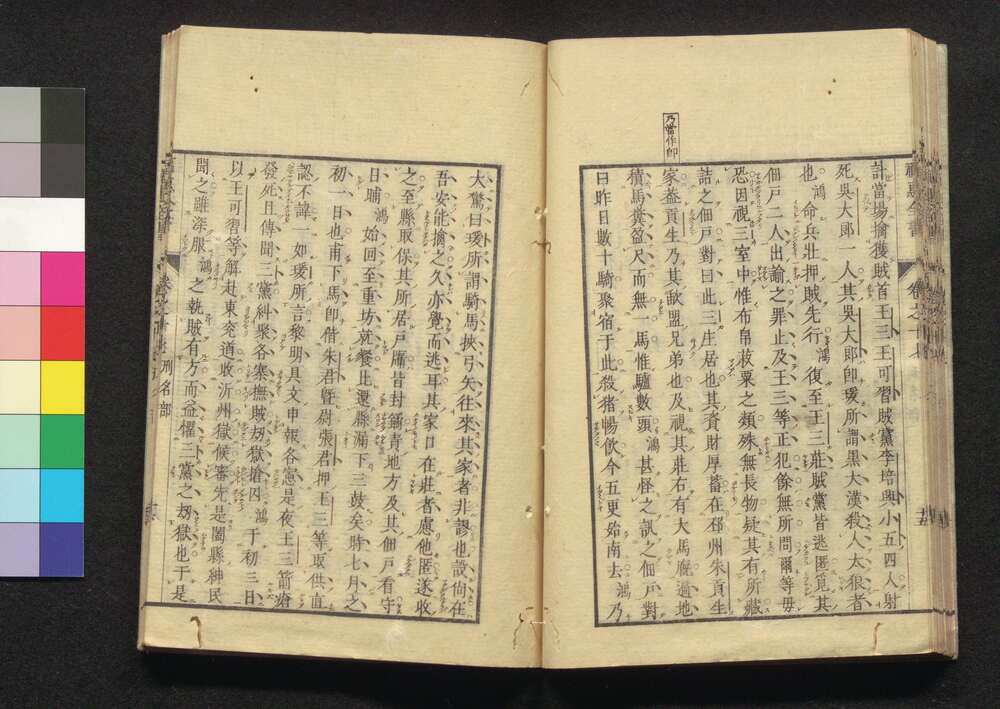 乃當作即
計當場擒獲賊首王三王可習賊黨李培與小五四人射
死吳大郎一人其吳大郎即瑗所謂黑大漢殺人太狠者
也鴻命兵壯押賊先行鴻復至王三莊賊黨皆逃匿覓其
佃戶二人出諭之罪止及王三等正犯餘無所問爾等毋
恐因視三室中惟布帛菽粟之類殊無長物疑其有所藏
詰之佃戶對曰此三庄居也其資財厚蓄在邳州朱貢生
家葢貢生乃其歃盟兄弟也及視其莊右有大馬廐遍地
積馬糞盈尺而無一馬惟驢數頭鴻甚怪之訊之佃戶對
曰昨日數十騎聚宿于此殺猪暢飲今五更始南去鴻乃
福惠全書
卷之十七
十五
大驚曰瑗所謂騎馬挾弓矢往來其家者非謬也設尙在
吾安能擒之久亦覺而逃耳其家口在莊者慮他匿遂收
之至縣取保其所居戶牖皆封鎖靑地方及其佃戶看守
日晡鴻始回至重坊就餐比還縣漏下三鼓矣時七月之
初一日也甫下馬即偕朱君曁尉張君押王三等取供直
認不諱一如瑗所言黎明具文申報各憲是夜王三箭瘡
發死且傳聞三黨糾聚各寨撫賊刼獄搶囚鴻于初三日
以王可習等解赴東兖道收沂州獄候審先是闔縣紳民
聞之雖深服鴻之執賊有方而益懼三黨之刼獄也于是
刑名部